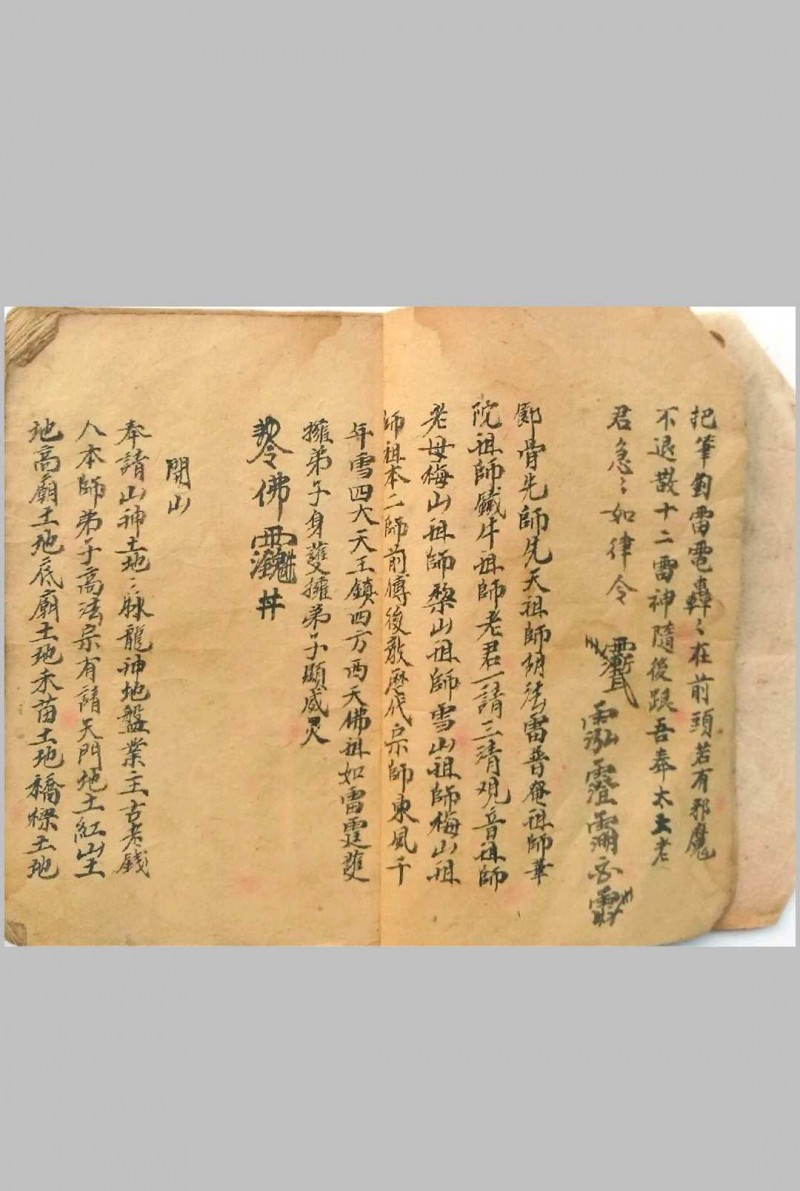 把筆到雷電轟〻在前頭若有邪魔
不退散十二雷神隨後跟吾奉太上老
君急〻如律令
骨先師先天祖師胡法雷普奄祖師華
院祖師鐵牛祖師老君一請三清观音祖師
老母梅山祖師黎山祖師雪山祖師梅山祖
師祖本二師前傳後教历代宗師東風千
年雪四大天王鎮四方西天佛祖如雷霆
擁弟子身擁弟子顯威灵
佛
開山
奉請山神土地〻脉龍神地盤業主古老錢
人本師弟子高法宗有請天門地土紅山土
地高廟土地底廟土地禾苗土地橋樑土地